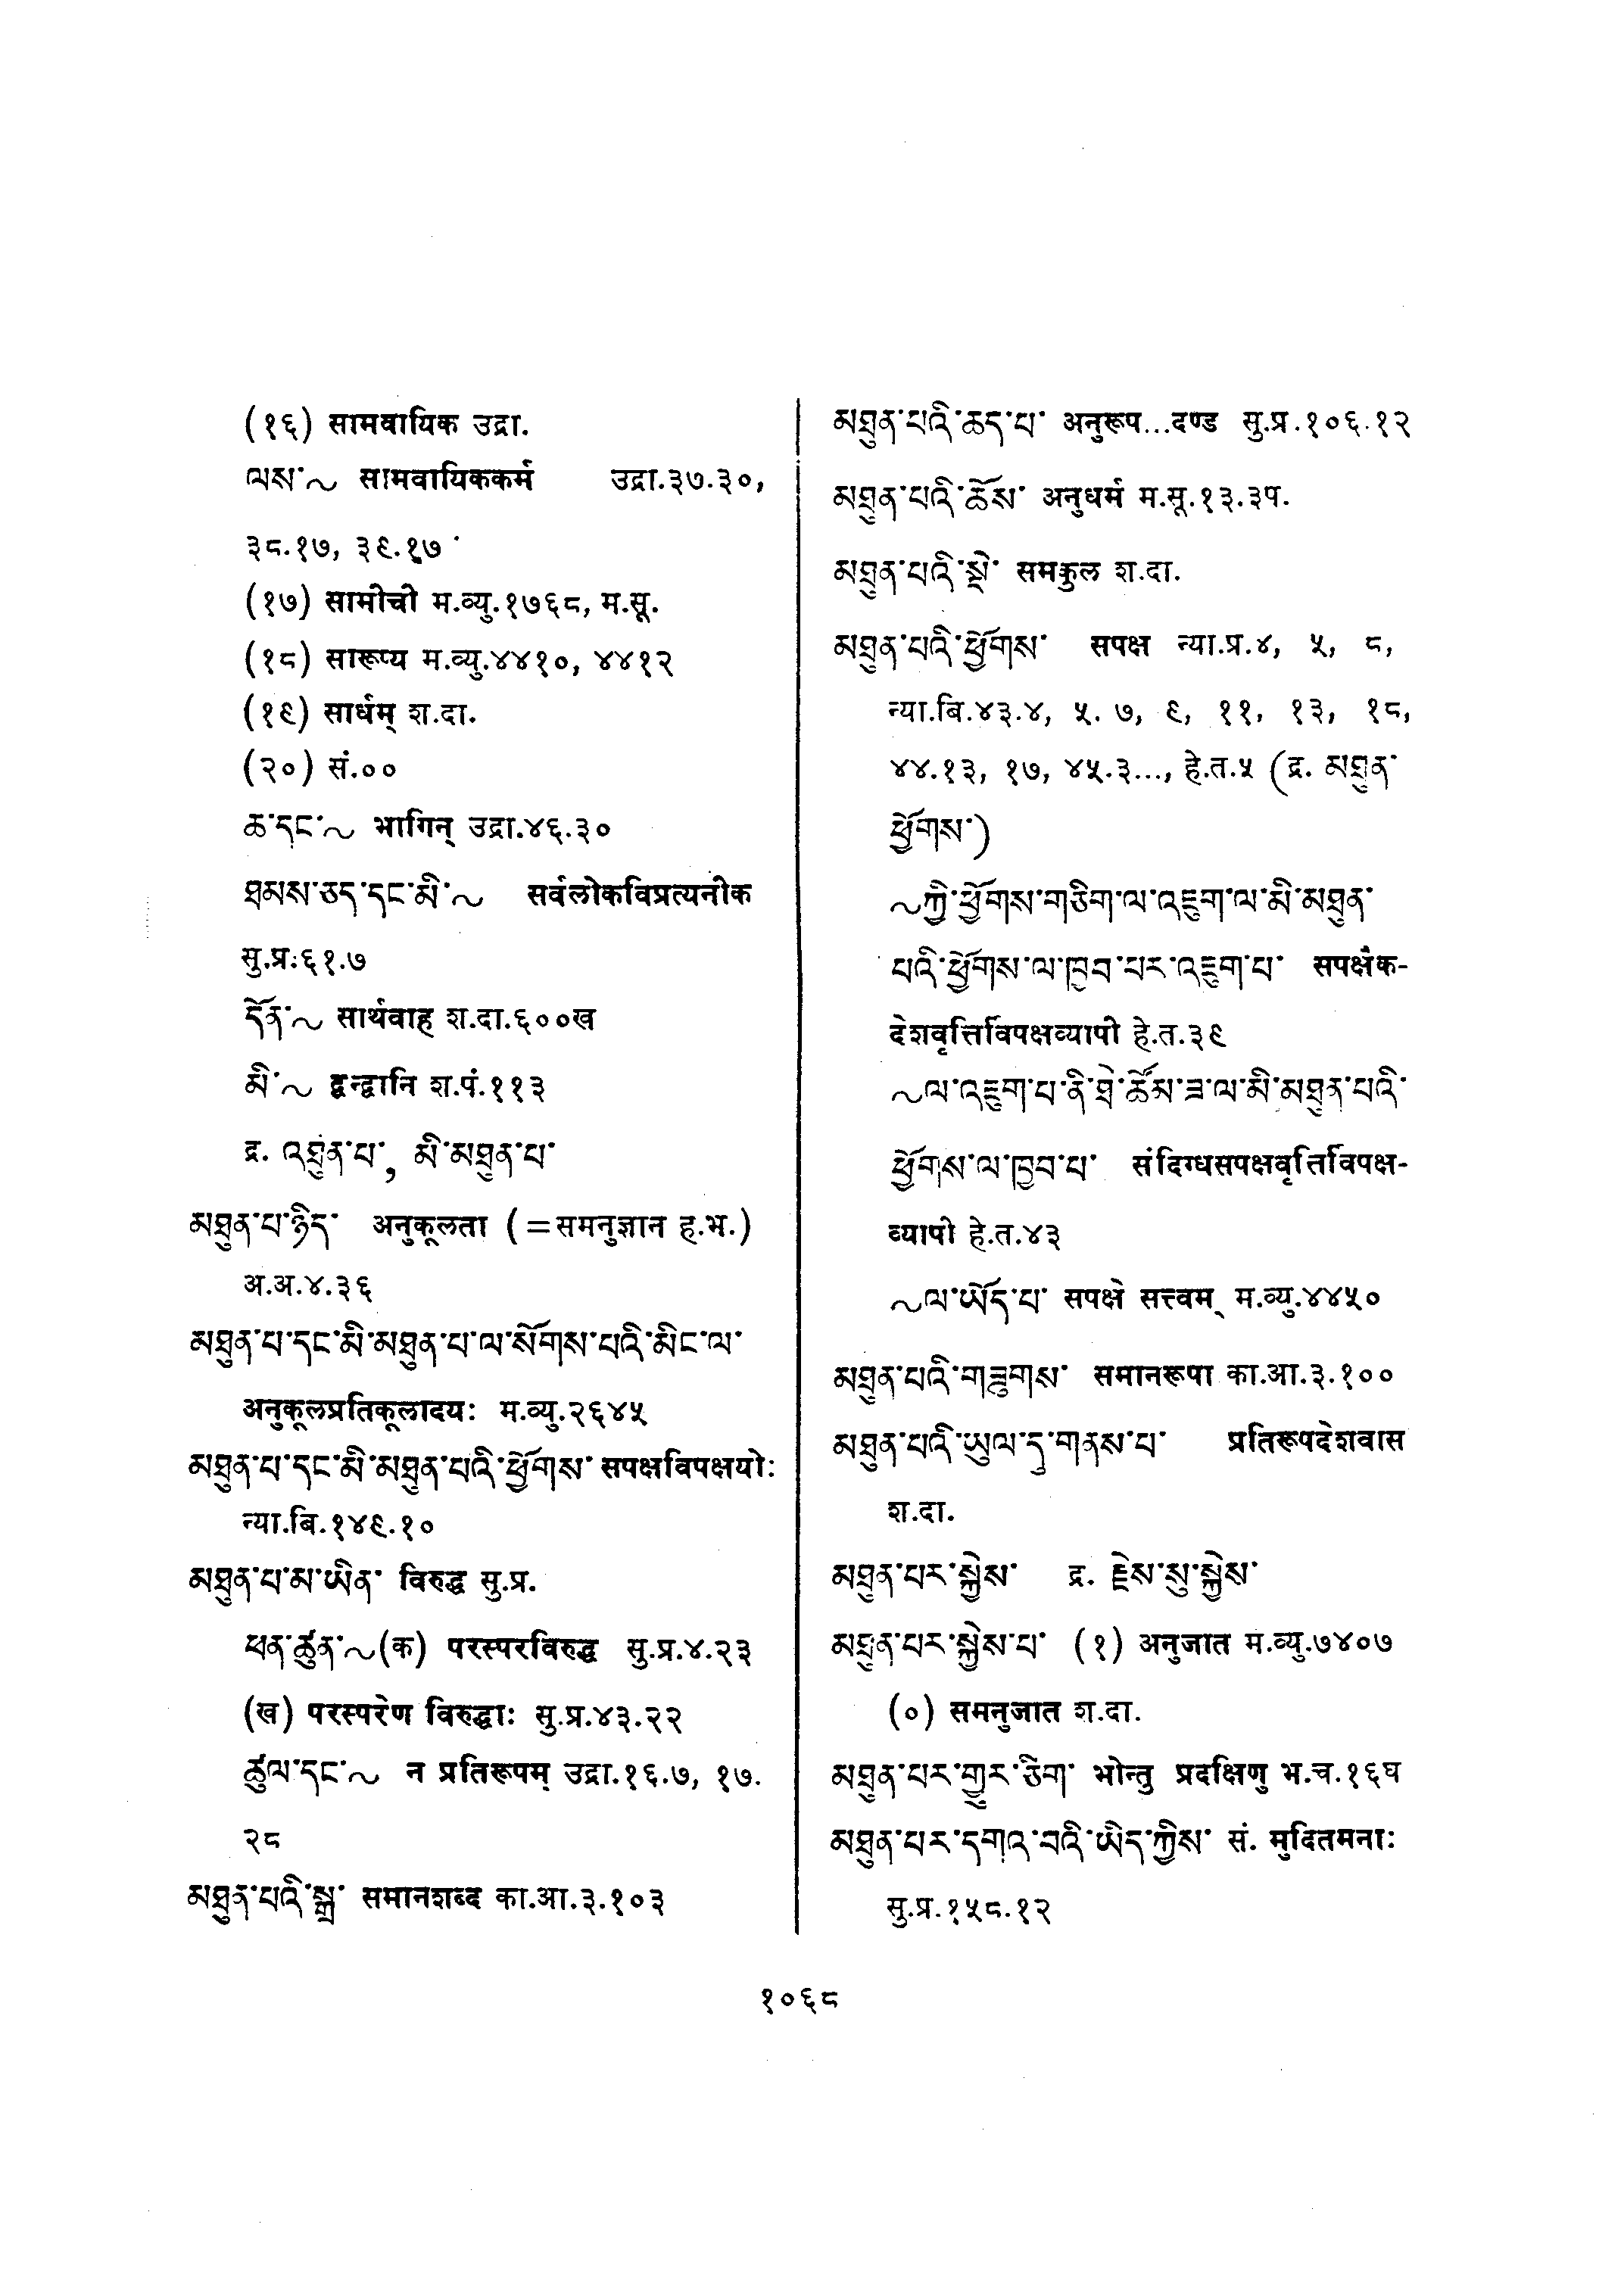 (१६) सामवायिक उद्रा.
ལས་~ सामवायिककर्म उद्रा.३७.३०,
३८.१७, ३९.१७
(१७) सामीची म.व्यु.१७६८, म.सू.
(१८) सारूप्य म.व्यु.४४१०, ४४१२
(१९) सार्धम् श.दा.
(२०) सं.००
ཆ་དང་~ भागिन् उद्रा.४६.३०
ཐམས་ཅད་དང་མི་~ सर्वलोकविप्रत्यनीक
सु.प्र.६१.७
དོན་~ सार्थवाह श.दा.६००ख
མི་~ द्वन्द्वानि श.पं.११३
द्र. འཐུན་པ་, མི་མཐུན་པ་
མཐུན་པ་ཉིད་ अनुकूलता (=समनुज्ञान ह.भ.)
अ.अ.४.३६
མཐུན་པ་དང་མི་མཐུན་པ་ལ་སོགས་པའི་མིང་ལ་
अनुकूलप्रतिकूलादयः म.व्यु.२६४५
མཐུན་པ་དང་མི་མཐུན་པའི་ཕྱོགས་ सपक्षविपक्षयोः
न्या.बि.१४९.१०
མཐུན་པ་མ་ཡིན་ विरुद्ध सु.प्र.
ཕན་ཚུན་~(क) परस्परविरुद्ध सु.प्र.४.२३
(ख) परस्परेण विरुद्धाः सु.प्र.४३.२२
ཚུལ་དང་~ न प्रतिरूपम् उद्रा.१६.७, १७.
२८
མཐུན་པའི་སྒྲ་ समानशब्द का.आ.३.१०३
མཐུན་པའི་ཆད་པ་ अनुरूप...दण्ड सु.प्र.१०६.१२
མཐུན་པའི་ཆོས་ अनुधर्म म.सू.१३.३प.
མཐུན་པའི་སྡེ་ समकुल श.दा.
མཐུན་པའི་ཕྱོགས་ सपक्ष न्या.प्र.४, ५, ८,
न्या.बि.४३.४, ५. ७, ९, ११, १३, १८,
४४.१३, १७, ४५.३..., हे.त.५ (द्र. མཐུན་
ཕྱོགས་)
~ཀྱི་ཕྱོགས་གཅིག་ལ་འཇུག་ལ་མི་མཐུན་
པའི་ཕྱོགས་ལ་ཁྱབ་པར་འཇུག་པ་ सपक्षैक-
देशवृत्तिर्विपक्षव्यापी हे.त.३९
~ལ་འཇུག་པ་ནི་ཐེ་ཚོམ་ཟ་ལ་མི་མཐུན་པའི་
ཕྱོགས་ལ་ཁྱབ་པ་ संदिग्धसपक्षवृत्तिर्विपक्ष-
व्यापी हे.त.४३
~ལ་ཡོད་པ་ सपक्षे सत्त्वम् म.व्यु.४४५०
མཐུན་པའི་གཟུགས་ समानरूपा का.आ.३.१००
མཐུན་པའི་ཡུལ་དུ་གནས་པ་ प्रतिरूपदेशवास
श.दा.
མཐུན་པར་སྐྱེས་ द्र. རྗེས་སུ་སྐྱེས་
མཐུན་པར་སྐྱེས་པ་ (१) अनुजात म.व्यु.७४०७
(०) समनुजात श.दा.
མཐུན་པར་གྱུར་ཅིག་ भोन्तु प्रदक्षिणु भ.च.१६घ
མཐུན་པར་དགའ་བའི་ཡིད་ཀྱིས་ सं. मुदितमनाः
सु.प्र.१५८.१२
१०६८